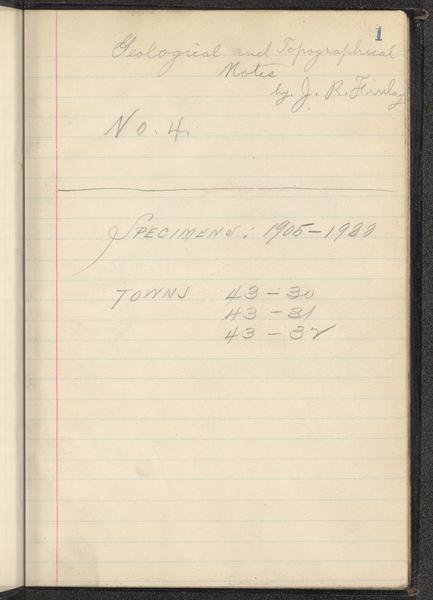 1
Geological and Topographical
Notes
by J. R. Finlay
No. 4.
SPECIMENS: 1905-1983
TOWNS 43-30
43-31
43-32